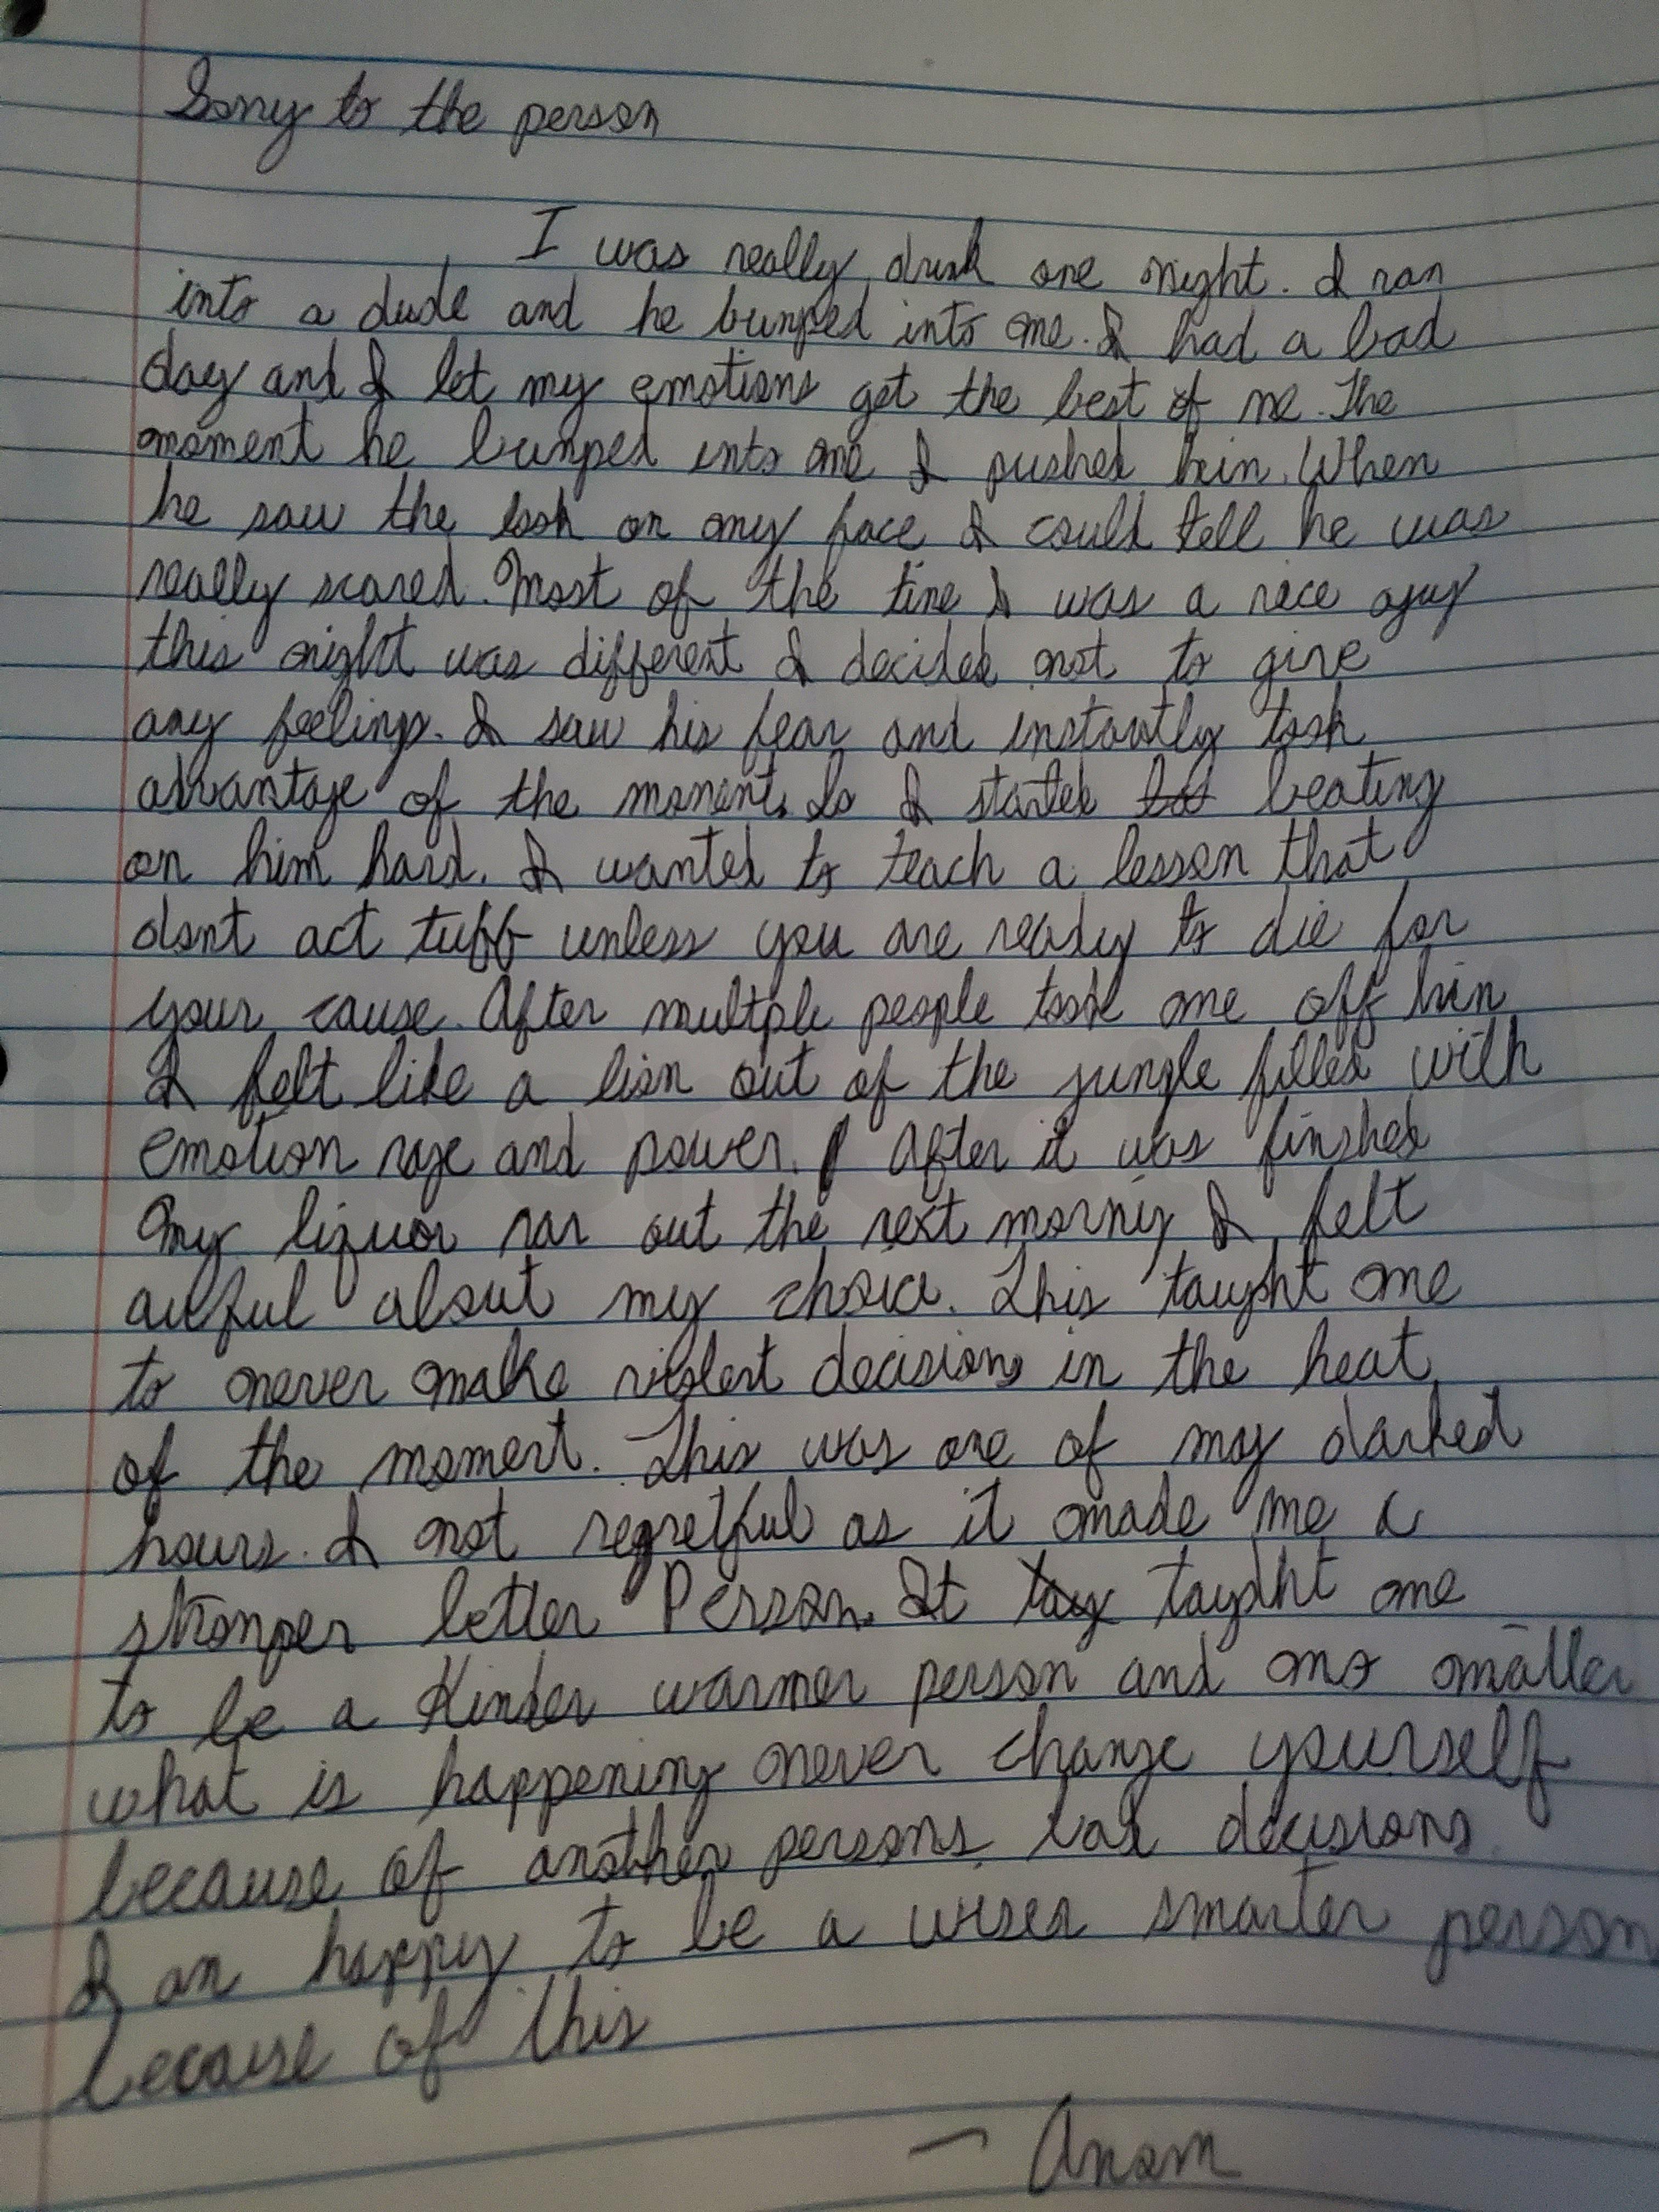 Sorry to the person
I was really drunk one night. I ran
into a dude and he bumped into me. I had a bad
day and I let my emotions get the best of me. The
moment he bumped into me I pushed him. When
he saw the look on my face I could tell he was
really scared. Most of the time I was a nice guy
this night was different I decided not to give
any feelings. I saw his fear and instantly took
advantage of the moment. So I started beating
on him hard. I wanted to teach a lesson that
dont act tuff unless you are ready to die for
your cause. After multple people took me off him
I felt like a lion out of the jungle filled with
emotion rage and power. After it was finshed
My liquor ran out the next morning I felt
awful about my choice. This taught me
to never make violent decisions in the heat
of the moment. This was one of my darked
hours. I not regretful as it made me a
stronger better Person. It taught me
to be a Kinder warmer person and no matter
what is happening never change yourself
because of another persons bad decisions
I am happy to be a wiser smarter person
because of this
- Anom